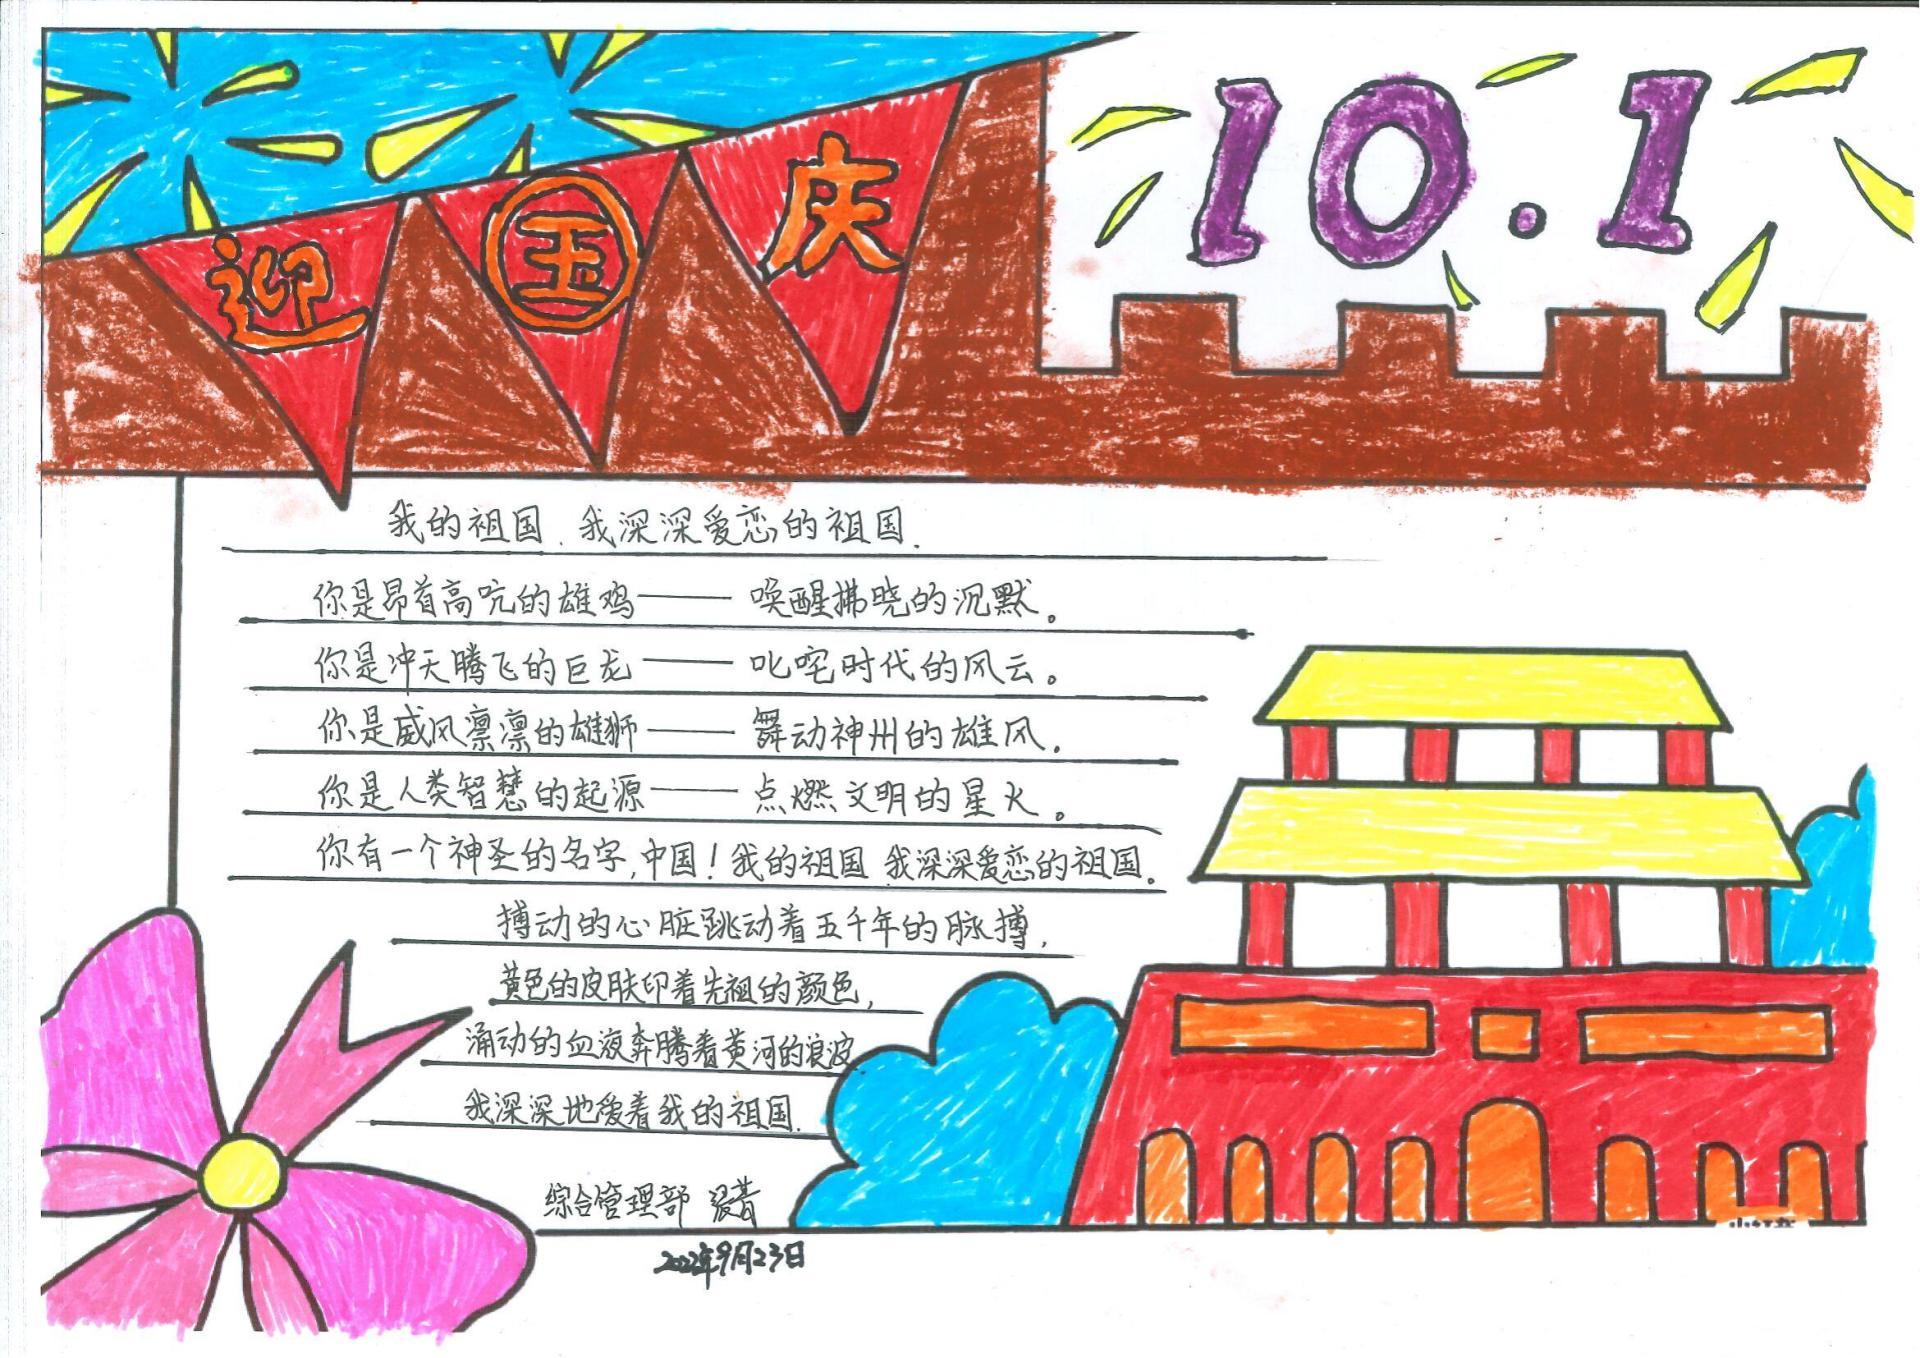 迎国庆
10.1
我的祖国、我深深爱恋的祖国.
你是昂首高吭的雄鸡——唤醒拂晓的沉默。
你是冲天腾飞的巨龙——叱咤时代的风云。
你是威风凛凛的雄狮——舞动神州的雄风。
你是人类智慧的起源——点燃文明的星火。
你有一个神圣的名字,中国!我的祖国、我深深爱恋的祖国。
搏动的心脏跳动着五千年的脉搏,
黄色的皮肤印着先祖的颜色,
涌动的血液奔腾着黄河的浪波
我深深地爱着我的祖国.
综合管理部
2022年9月23日